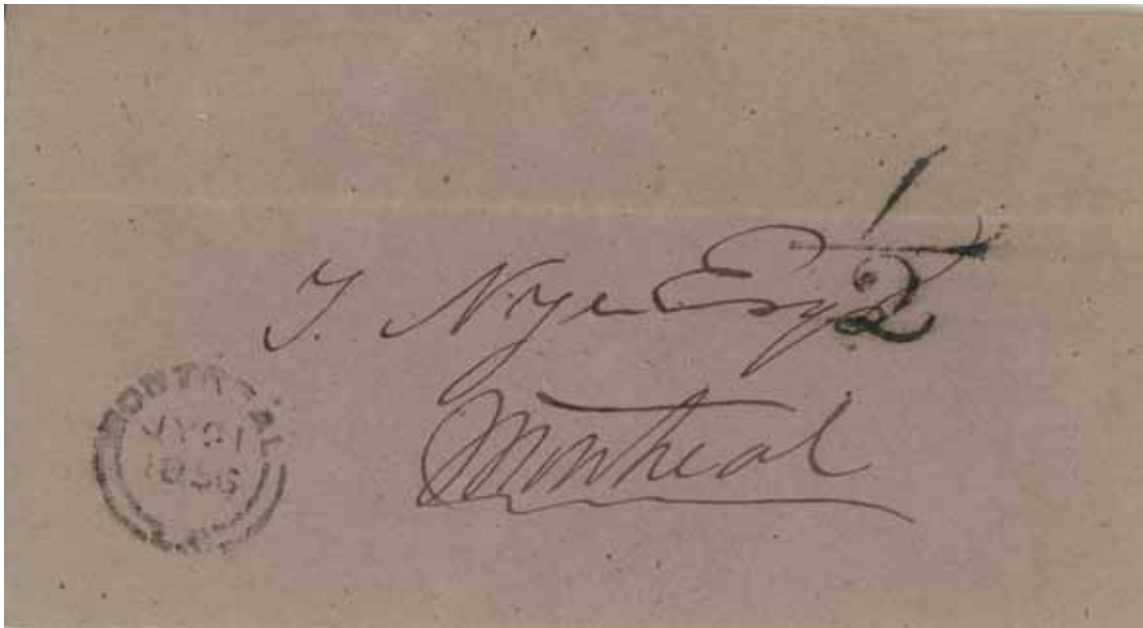 1/2
J. Nye Esq
Montreal
MONTREAL
JY 31
1856